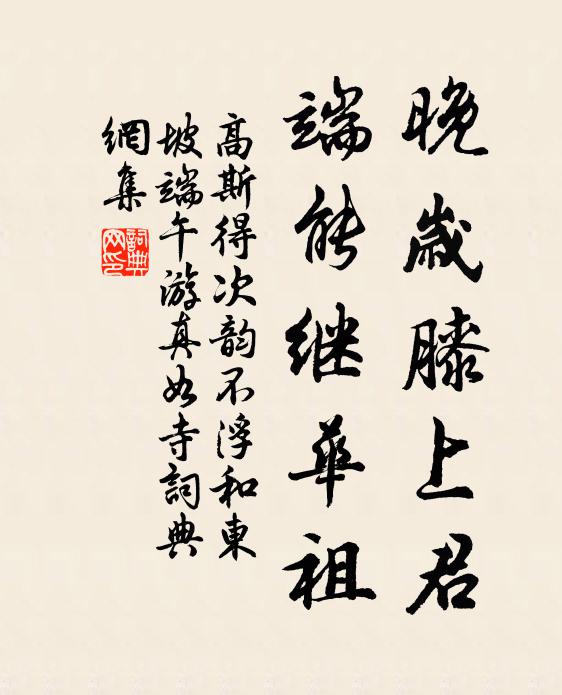 晚歲膝上君
端能继華祖
高斯得次韵不浮和東
坡端午游真如寺詞典
網集
詞典網印